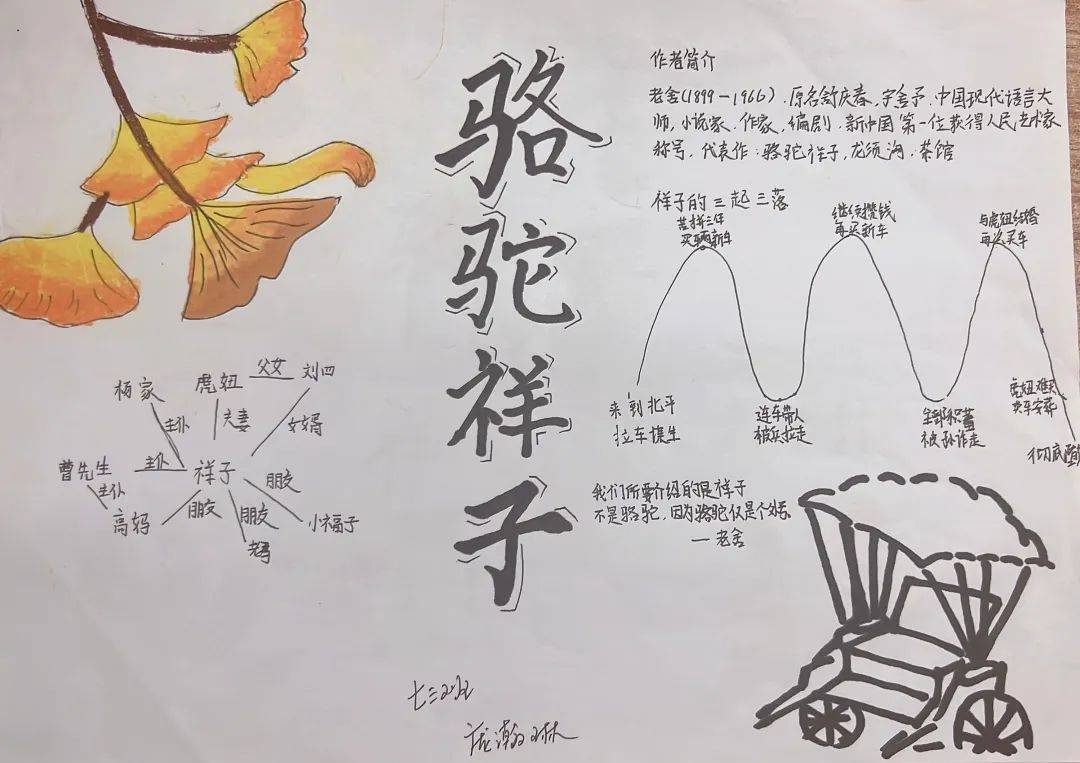 骆驼祥子
作者简介
老舍(1899-1966)，原名舒庆春，字舍予，中国现代语言大
师，小说家，作家，编剧，新中国第一位获得人民艺术家
称号，代表作：骆驼祥子，龙须沟，茶馆
祥子的三起三落
苦拼三年
买辆新车
继续攒钱
再买新车
与虎妞结婚
再次买车
来到北平
拉车谋生
连车带人
被兵拉走
全部积蓄
被孙诈走
虎妞难产
卖车安葬
彻底
杨家
虎妞
父女
刘四
主仆
夫妻
女婿
曹先生
主仆
祥子
朋友
主仆
高妈
朋友
朋友
小福子
老马
我们所要介绍的是祥子
不是骆驼，因为骆驼仅是个外号。
—老舍